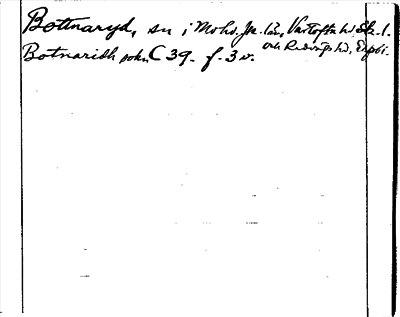 Bottnaryd, sn i Mo hd. Jk. län, Vartofta hd, Sk. l.
och Redvägs hd, Älvsb.
Botnaridh sokn C 39. f. 3 v.